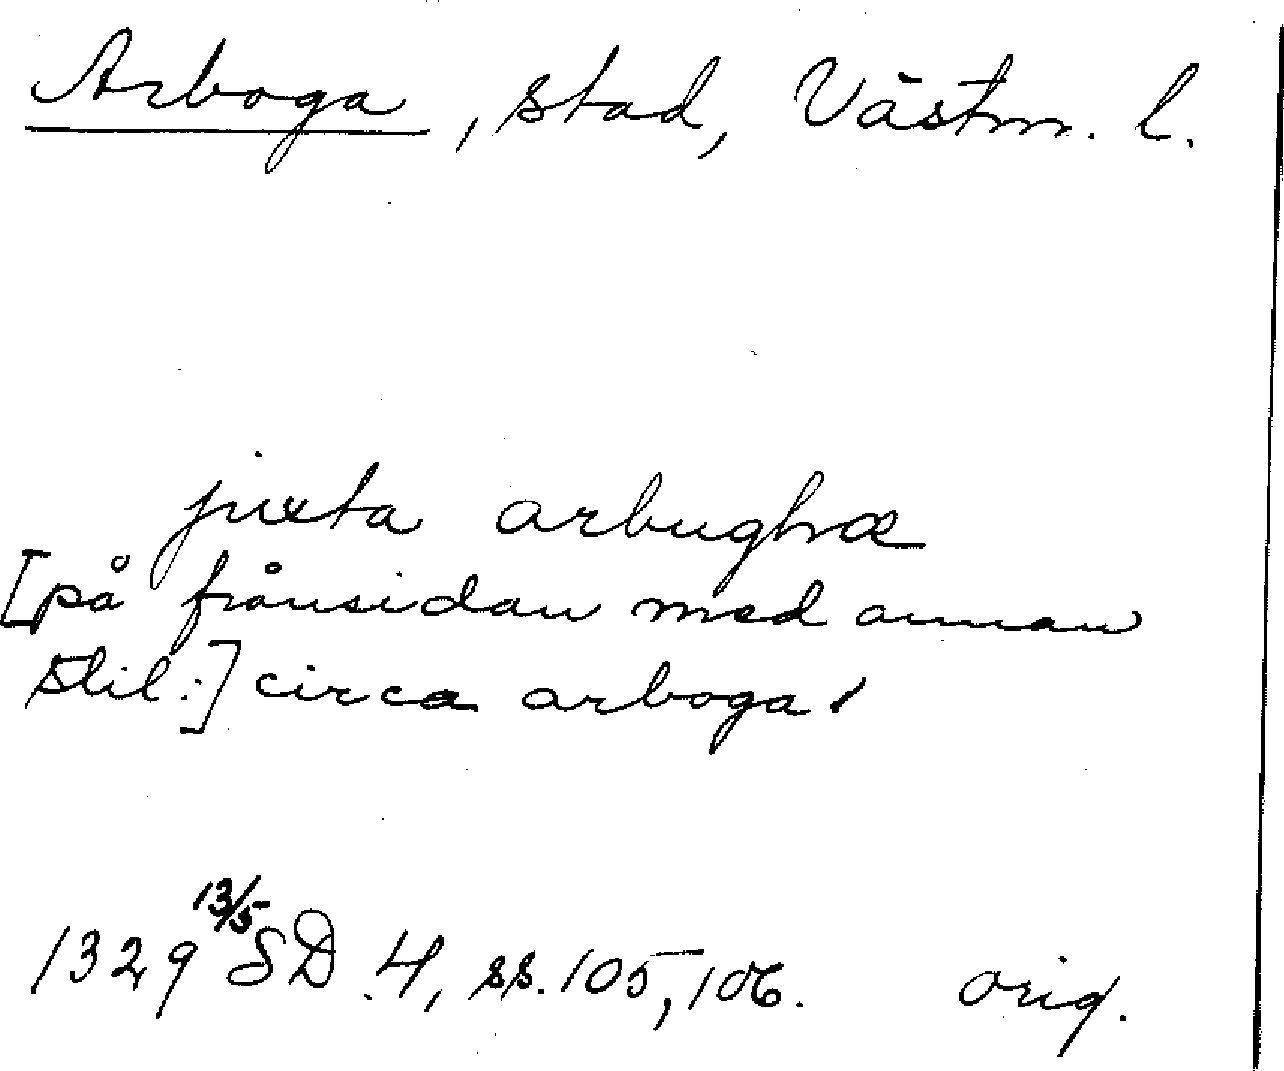 Arboga, stad, Västm. l.
juxta arbughæ
[på frånsidan med annan
stil:] circa arboga.
1329 13/5 SD 4, ss. 105, 106. orig.